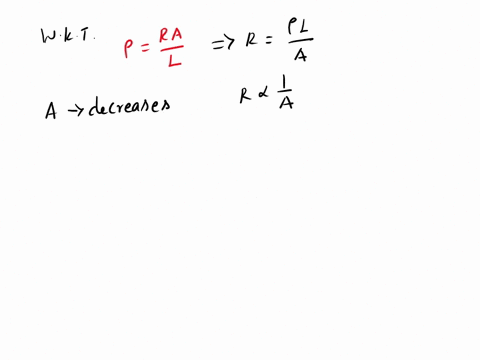 W.K.T. ρ = RA/L ⇒ R = ρL/A
A → decreases R ∝ 1/A